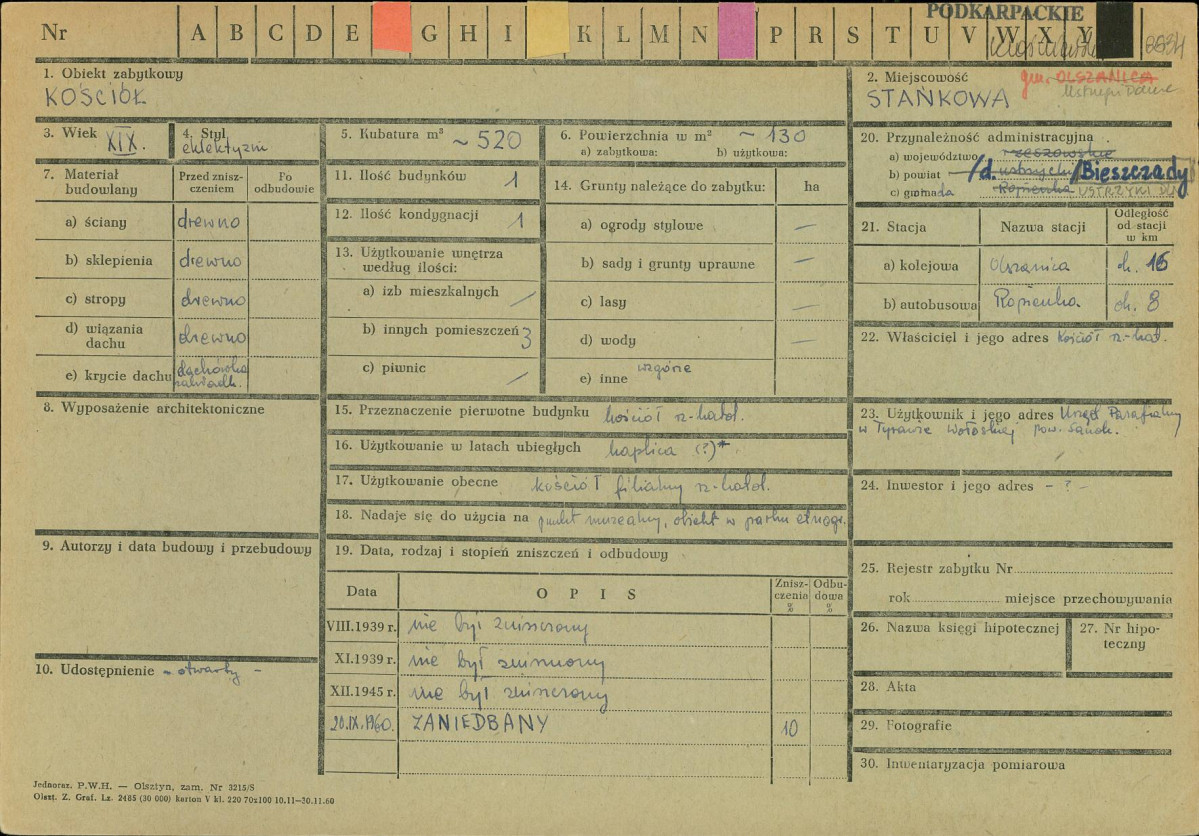 PODKARPACKIE
Nr A B C D E G H I K L M N P R S T U V W X Y
1. Obiekt zabytkowy
KOŚCIÓŁ
2. Miejscowość gm. OLSZANICA
STAŃKOWA
3. Wiek
XIX.
4. Styl
eklektyzm
5. Kubatura m³ ~ 520
6. Powierzchnia w m² ~ 130
a) zabytkowa: b) użytkowa:
7. Materiał budowlany
Przed znisz-
czeniem
Po
odbudowie
a) ściany drewno
b) sklepienia drewno
c) stropy drewno
d) wiązania
dachu drewno
e) krycie dachu dachówka
8. Wyposażenie architektoniczne
9. Autorzy i data budowy i przebudowy
10. Udostępnienie - otwarty -
11. Ilość budynków 1
12. Ilość kondygnacji 1
13. Użytkowanie wnętrza
według ilości:
a) izb mieszkalnych /
b) innych pomieszczeń 3
c) piwnic /
14. Grunty należące do zabytku: ha
a) ogrody stylowe —
b) sady i grunty uprawne —
c) lasy —
d) wody —
e) inne wzgórze
15. Przeznaczenie pierwotne budynku kościół rz-katol.
16. Użytkowanie w latach ubiegłych kaplica (?)*
17. Użytkowanie obecne kościół filialny rz-katol.
18. Nadaje się do użycia na punkt muzealny, obiekt w parku etnogr.
19. Data, rodzaj i stopień zniszczeń i odbudowy
Data O P I S Znisz-
czenia
% Odbu-
dowa
%
VIII.1939 r. nie był zniszczony
XI.1939 r. nie był zniszczony
XII.1945 r. nie był zniszczony
20.IX.1960. ZANIEDBANY 10
20. Przynależność administracyjna
a) województwo rzeszowskie
b) powiat /d. ustrzycki/Bieszczady
c) gromada Ropienka USTRZYKI DL.
21. Stacja Nazwa stacji Odległość
od stacji
w km
a) kolejowa Olszanica ok. 15
b) autobusowa Ropienka ok. 8
22. Właściciel i jego adres Kościół rz.-kat.
23. Użytkownik i jego adres Urząd Parafialny
w Tyrawie Wołoskiej pow. Sanok.
24. Inwestor i jego adres - ? -
25. Rejestr zabytku Nr
rok miejsce przechowywania
26. Nazwa księgi hipotecznej
27. Nr hipo-
teczny
28. Akta
29. Fotografie
30. Inwentaryzacja pomiarowa
Jednoraz. P.W.H. — Olsztyn, zam. Nr 3215/S
Olszt. Z. Graf. Lz. 2465 (30 000) karton V kl. 220 70x100 10.11—30.11.60